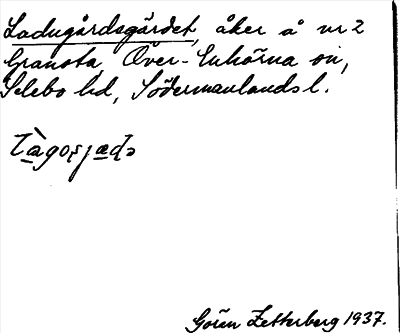 Ladugårdsgärdet, åker å nr 2
Gransta, Över-Enhörna sn,
Selebo hd, Södermanlands l.
Gören Zetterberg 1937.